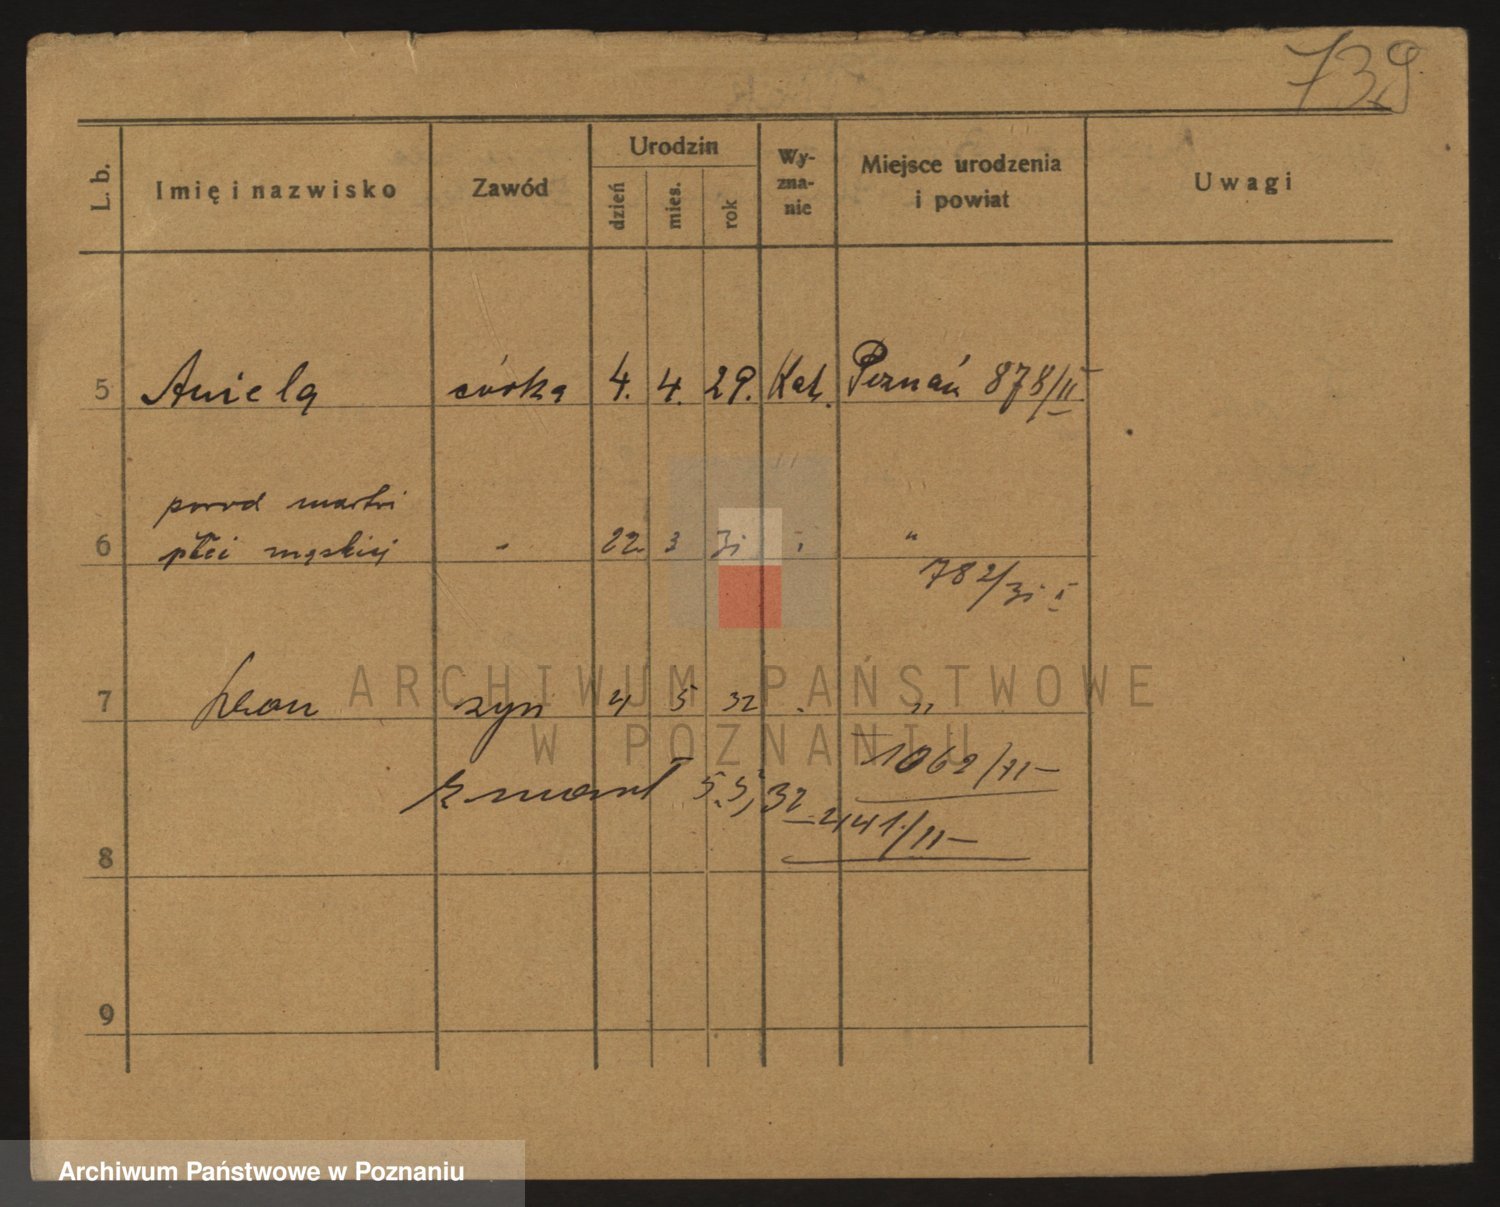 739
L. b.
Imię i nazwisko
Zawód
Urodzin
dzień
mies.
rok
Wy-
zna-
nie
Miejsce urodzenia
i powiat
Uwagi
5 Aniela córka 4. 4. 29. Kat. Poznań 878/II
poród martwi
6 płci męskiej - 22. 3 31 "
782/31 I
7 Leon syn 4 5 32 "
1062/II
zmarł 5.5.32 441/II
8
9
ARCHIWUM PAŃSTWOWE
W POZNANIU
Archiwum Państwowe w Poznaniu